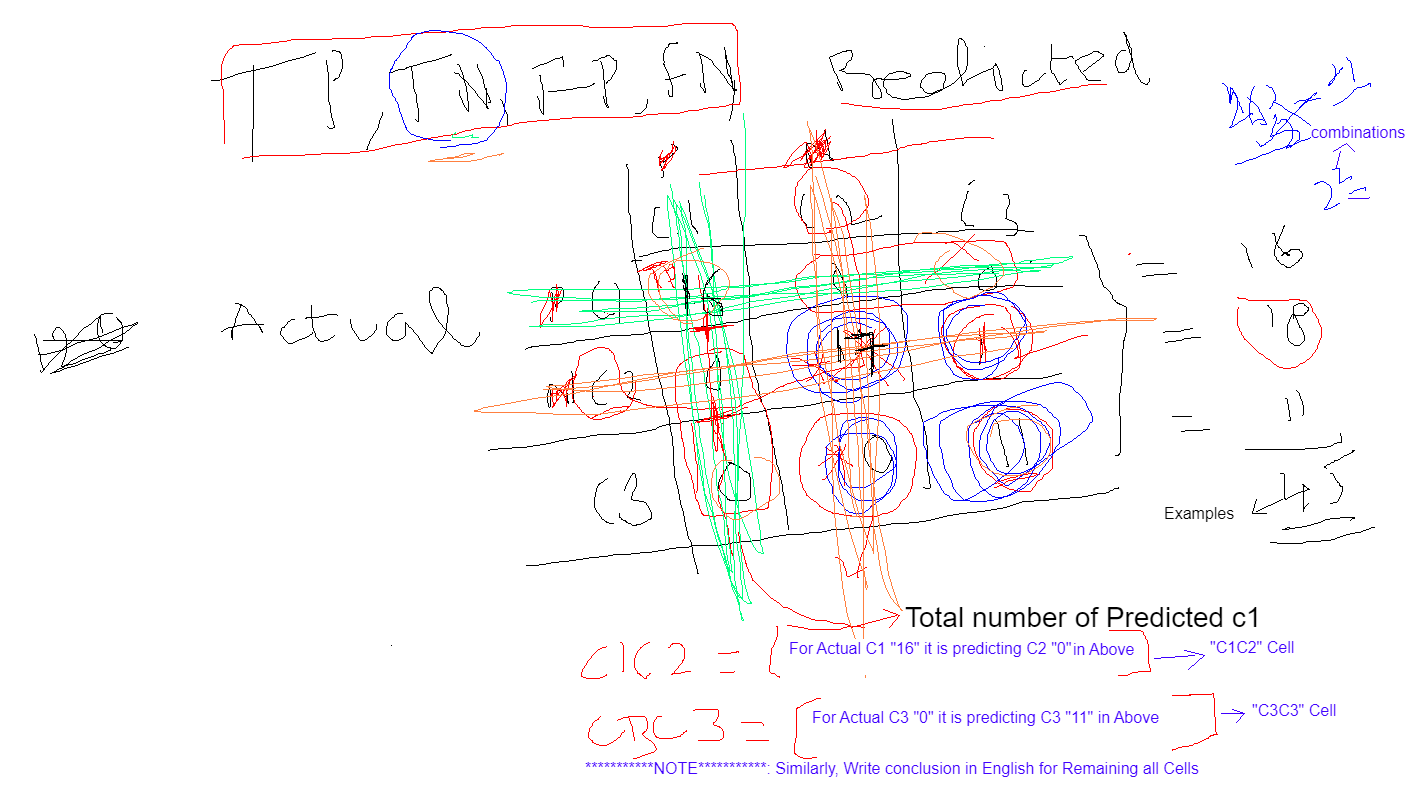 TP, TN, FP, FN
Predicted
combinations
2
C1 C3
Actual
C1 16 0 0 = 16
17 1 = 18
C3 0 0 11 = 11
45
Examples
Total number of Predicted c1
C1C2 = [For Actual C1 "16" it is predicting C2 "0"in Above] "C1C2" Cell
C3C3 = [For Actual C3 "0" it is predicting C3 "11" in Above "C3C3" Cell
***********NOTE***********: Similarly, Write conclusion in English for Remaining all Cells